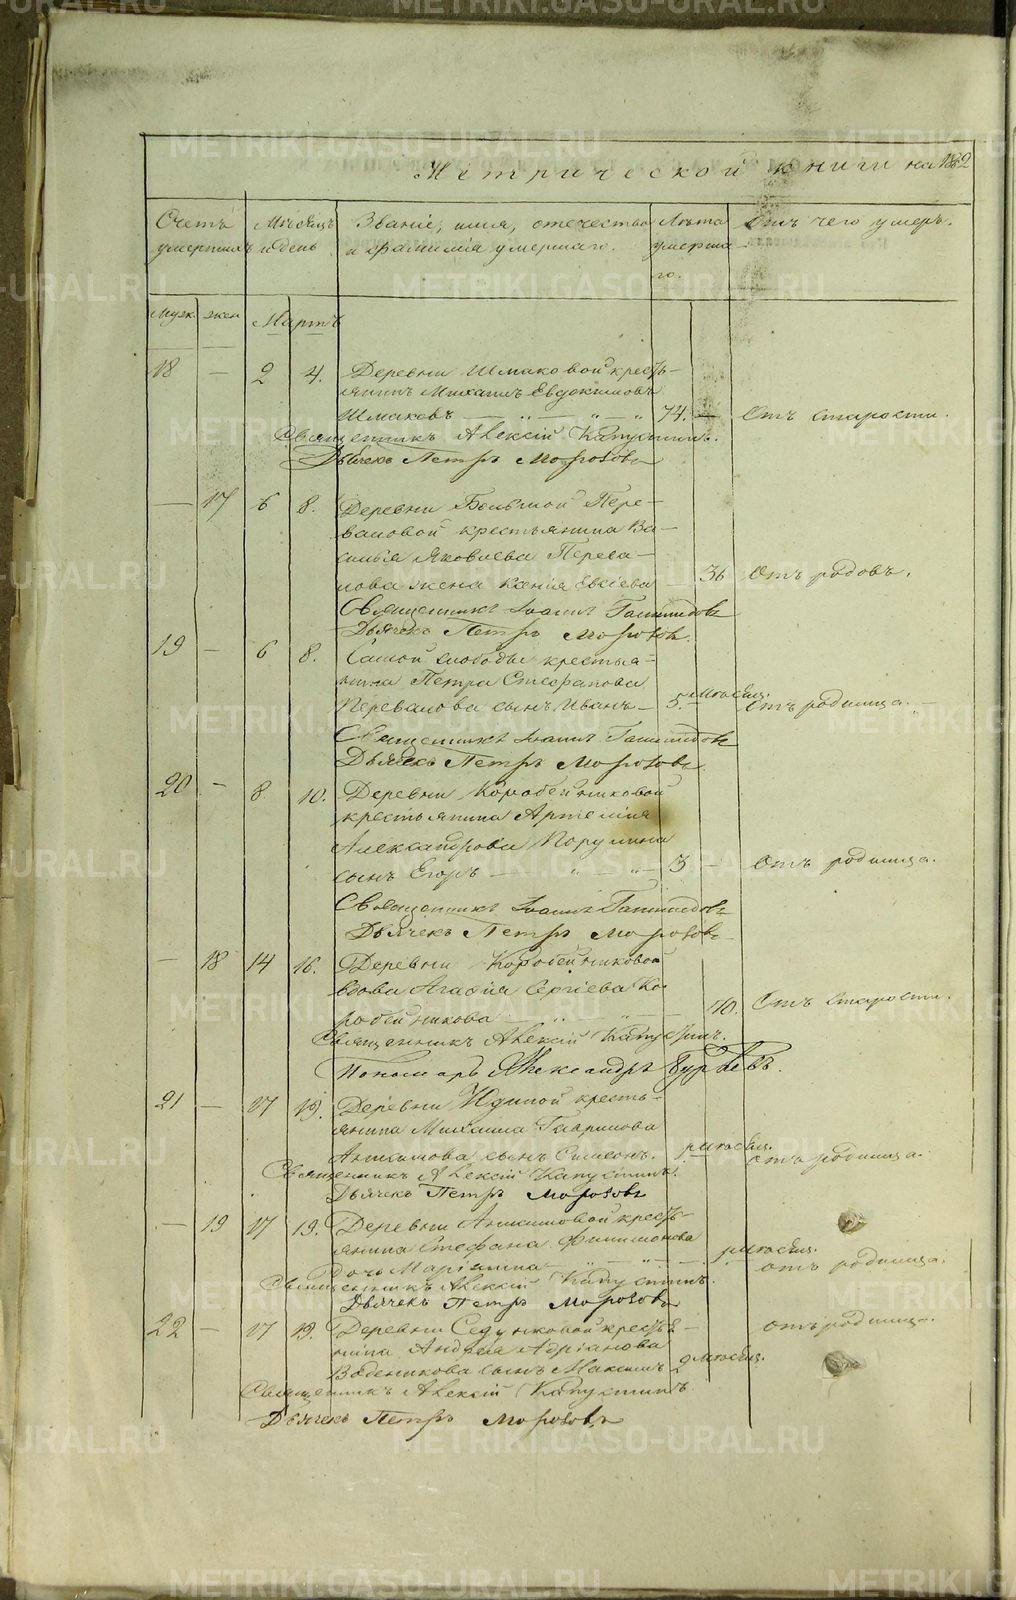 Метрической книги на 1862
Счетъ умершихъ
Мѣсяцъ и день
Званіе, имя, отечество и фамилія умершаго.
Лѣта умершаго.
Отъ чего умеръ.
Муж. жен. Мартъ
18 — 2 4. Деревни Шмаковой кресть-
янинъ Михаилъ Евдокимовъ
Шмаковъ — „ — „ — „ 74. — Отъ старости.
Священникъ Алексій Капустинъ.
Дьячекъ Петръ Морозовъ
— 17 6 8. Деревни Большой Пере-
валовой крестьянина Ва-
силья Яковлева Перева-
лова жена Ксенія Евсіева — 36 Отъ родовъ.
Священникъ Іоаннъ
Дьячекъ Петръ Морозовъ.
19 — 6 8. Самой слободы крестья-
нина Петра Стефанова
Перевалова сынъ Иванъ — 5. мѣсяц. Отъ родимца. —
Священникъ Іоаннъ
Дьячекъ Петръ Морозовъ.
20 — 8 10. Деревни Коробейниковой
крестьянина Артемія
Александрова
сынъ Егоръ — „ „ — 3 — Отъ родимца.
Священникъ Іоаннъ
Дьячекъ Петръ Морозовъ
— 18 14 16. Деревни Коробейниковой
вдова Агафія Сергіева Ко-
робейникова — „ — „ — 70. Отъ старости.
Священникъ Алексій Капустинъ.
Пономарь Александръ
21 — 17 19. Деревни Юдиной кресть-
янина Михаила Гаврилова
Аникимова сынъ Симеонъ. 1. мѣсяц. отъ родимца.
Священникъ Алексій Капустинъ.
Дьячекъ Петръ Морозовъ
— 19 17 19. Деревни Аникимовой кресть-
янина Стефана Филимонова
дочь Маріанна — „ — „ — 1. мѣсяц. отъ родимца.
Священникъ Алексій Капустинъ.
Дьячекъ Петръ Морозовъ
22 — 17 19. Деревни Седунковой крестья-
нина Андрея Адріанова отъ родимца.
Воденикова сынъ Максимъ 2 мѣсяц.
Священникъ Алексій Капустинъ
Дьячекъ Петръ Морозовъ
METRIKI.GASO-URAL.RU